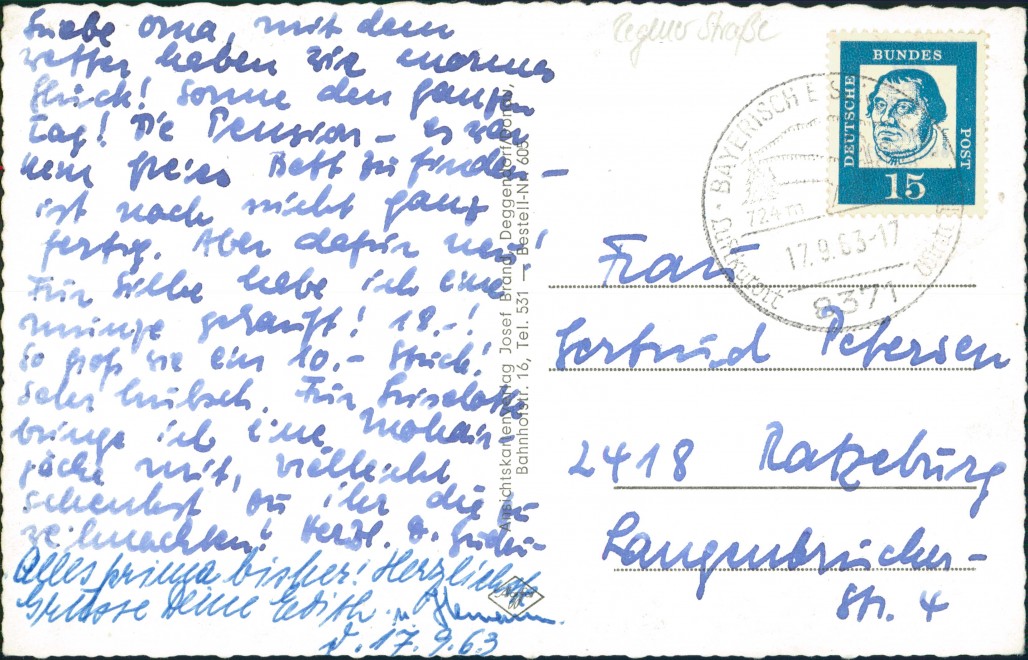 Liebe Oma, mit dem
Wetter haben wir enormes
Glück! Sonne den ganzen
Tag! Die Pension – es war
kein freies Bett zu finden –
ist noch nicht ganz
fertig. Aber dafür neu!
Für Silke habe ich eine
münze gekauft! 18.-!
So groß wie ein 10.- Stück!
Sehr hübsch. Für Liselotte
bringe ich eine Mohair
jacke mit, vielleicht
schenkst du ihr die zu
weihnachten! Herzl. D.
Alles prima bisher! Herzlichste
Grüsse Deine Edith u.
d. 17.9.63
Ansichtskartenverlag Josef Brandl, Deggendorf/Don
Bahnhofstr. 16, Tel. 531 — Bestell-Nr. 605
Regener Straße
DEUTSCHE
BUNDES
POST
15
BAYERISCH EIS
724 m
17.9.63-17
Luftkurort
8371
Frau
Gertrud Petersen
2418 Ratzeburg
Langenbrücker-
Str. 4